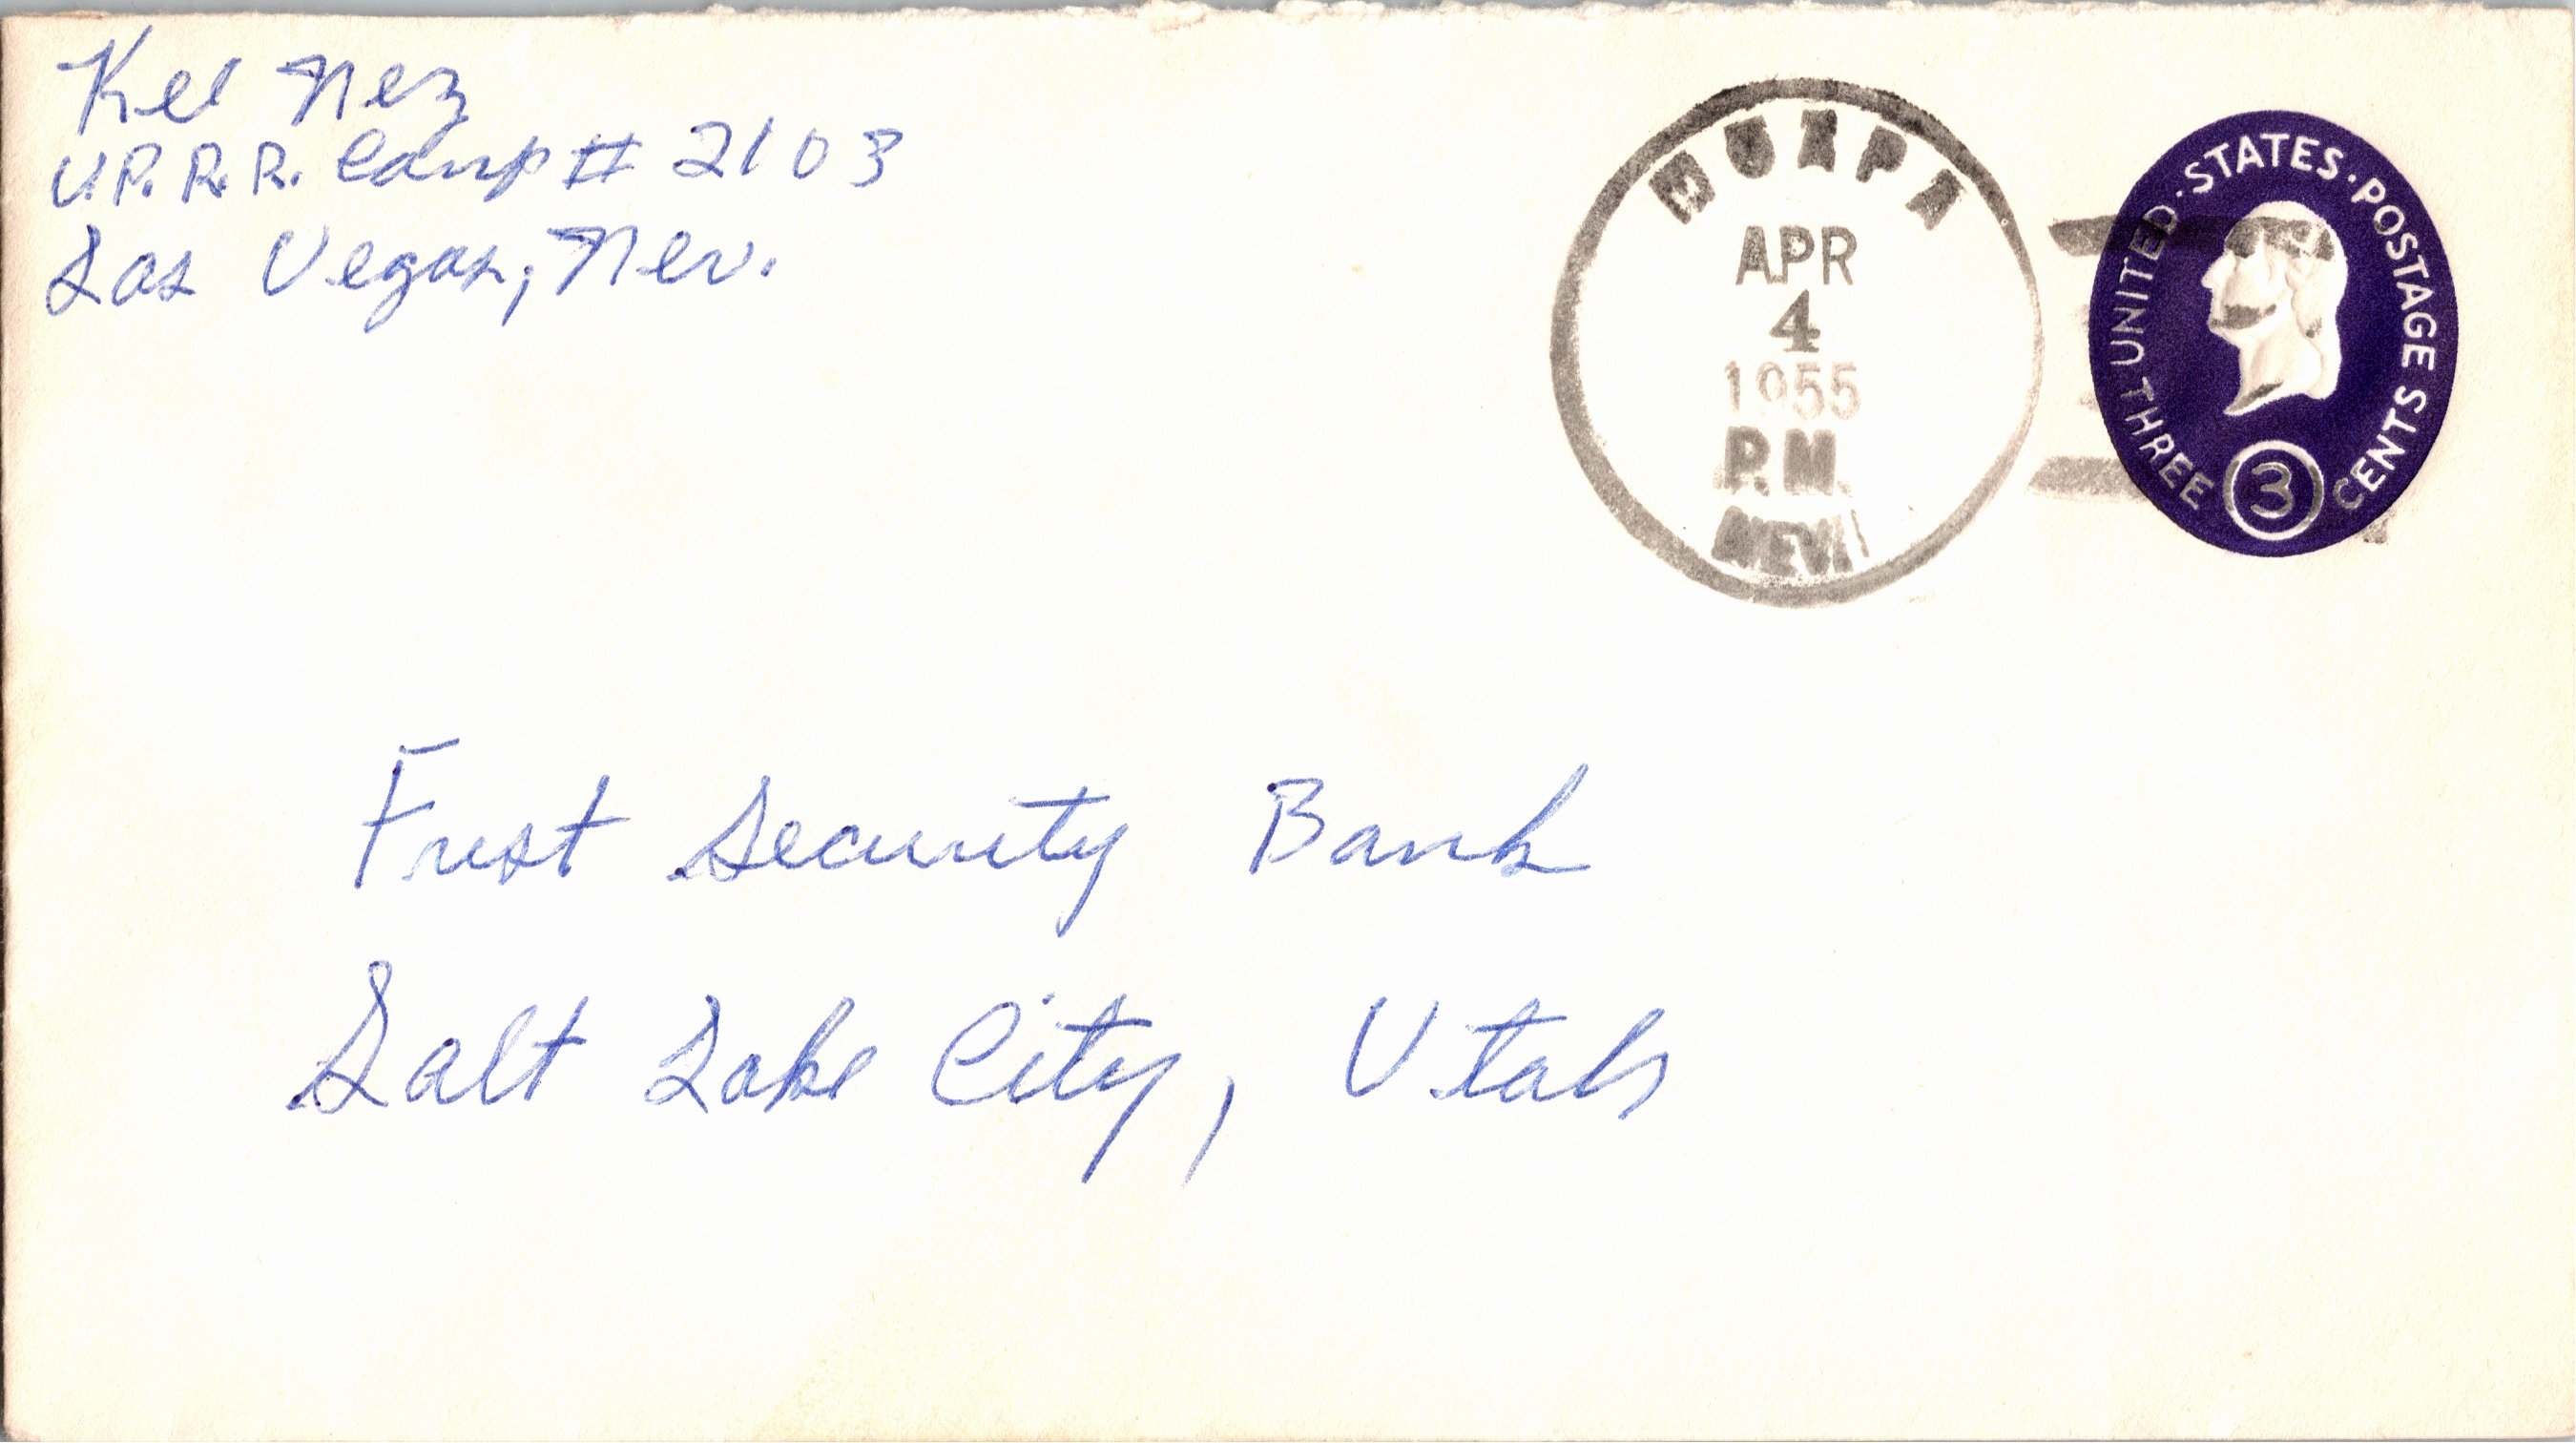 Kee Nez
U.P.R.R. Camp # 2103
Las Vegas, Nev.
MOAPA
APR
4
1955
P.M.
NEV.
UNITED · STATES · POSTAGE
THREE 3 CENTS
First Security Bank
Salt Lake City, Utah